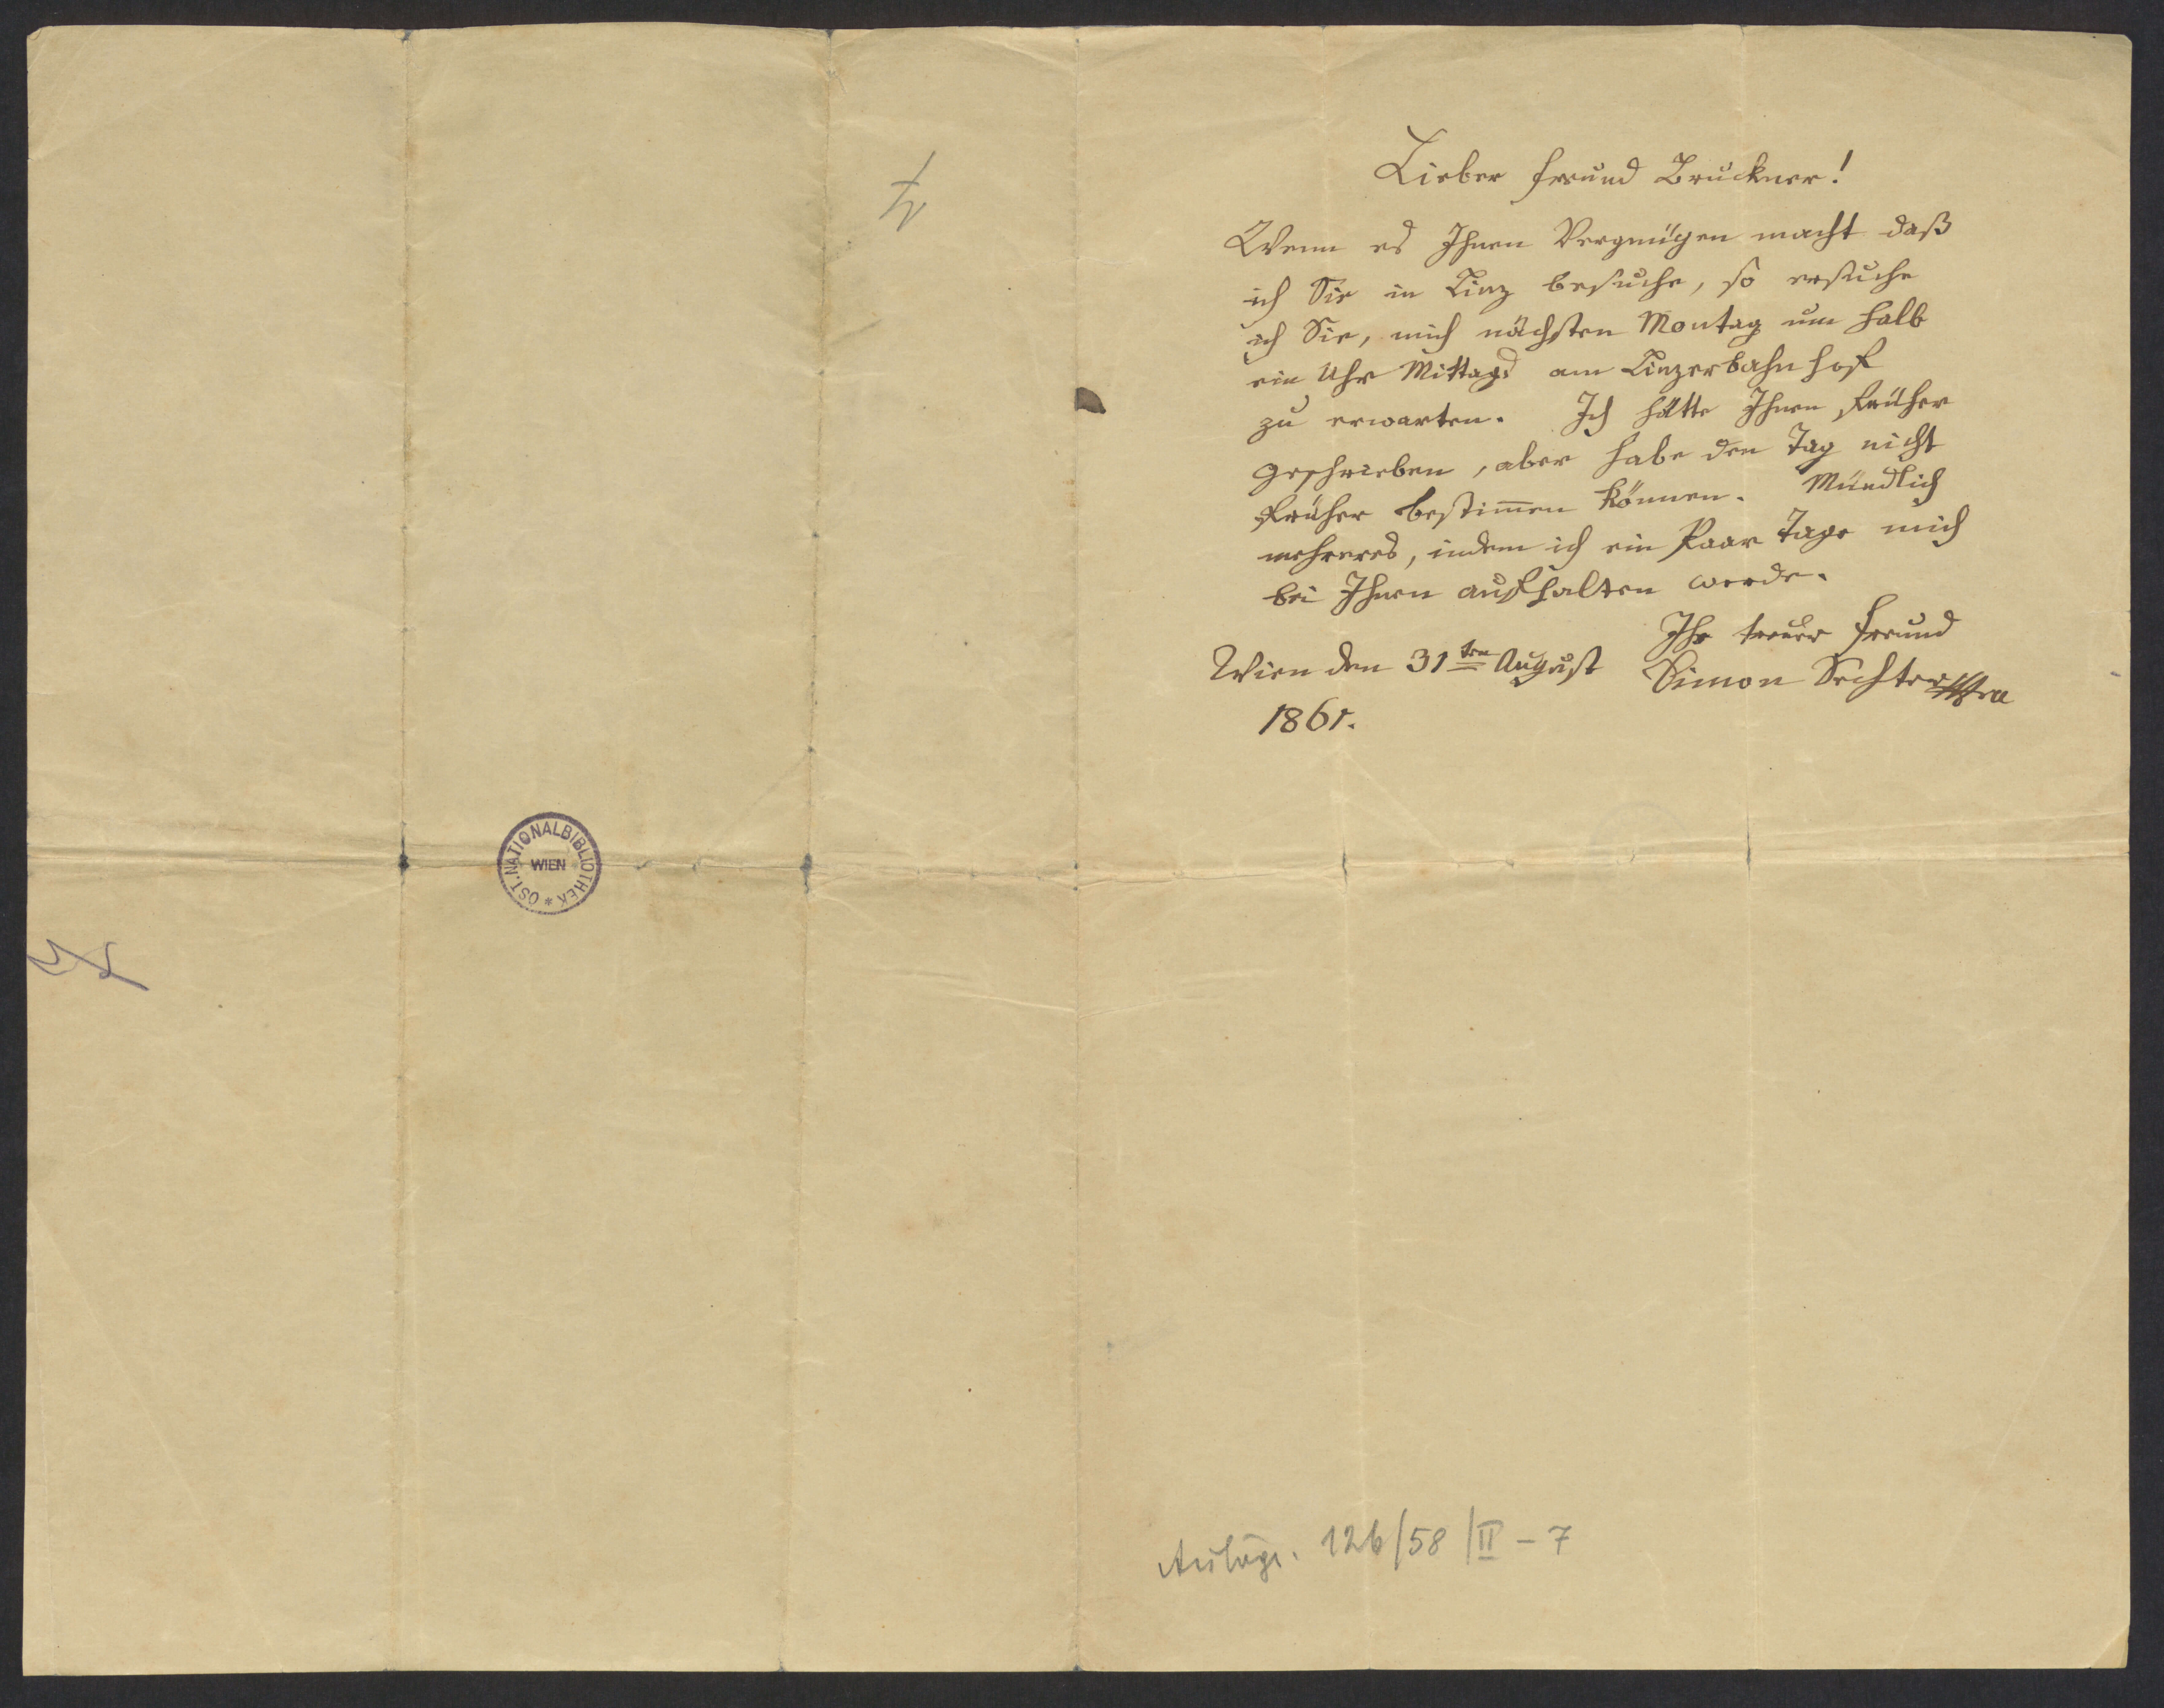 Lieber Freund Bruckner!
Wenn es Ihnen Vergnügen macht daß
ich Sie in Linz besuche, so ersuche
ich Sie, mich nächsten Montag um halb
ein Uhr Mittags am Linzerbahnhof
zu erwarten. Ich hätte Ihnen früher
geschrieben, aber habe den Tag nicht
früher bestim̅en können. Mündlich
mehreres, indem ich ein Paar Tage mich
bei Ihnen aufhalten werde.
Ihr treuer Freund
Simon Sechter
Wien den 31ten August
1861.
ÖST. NATIONALBIBLIOTHEK * WIEN
126/58/II-7